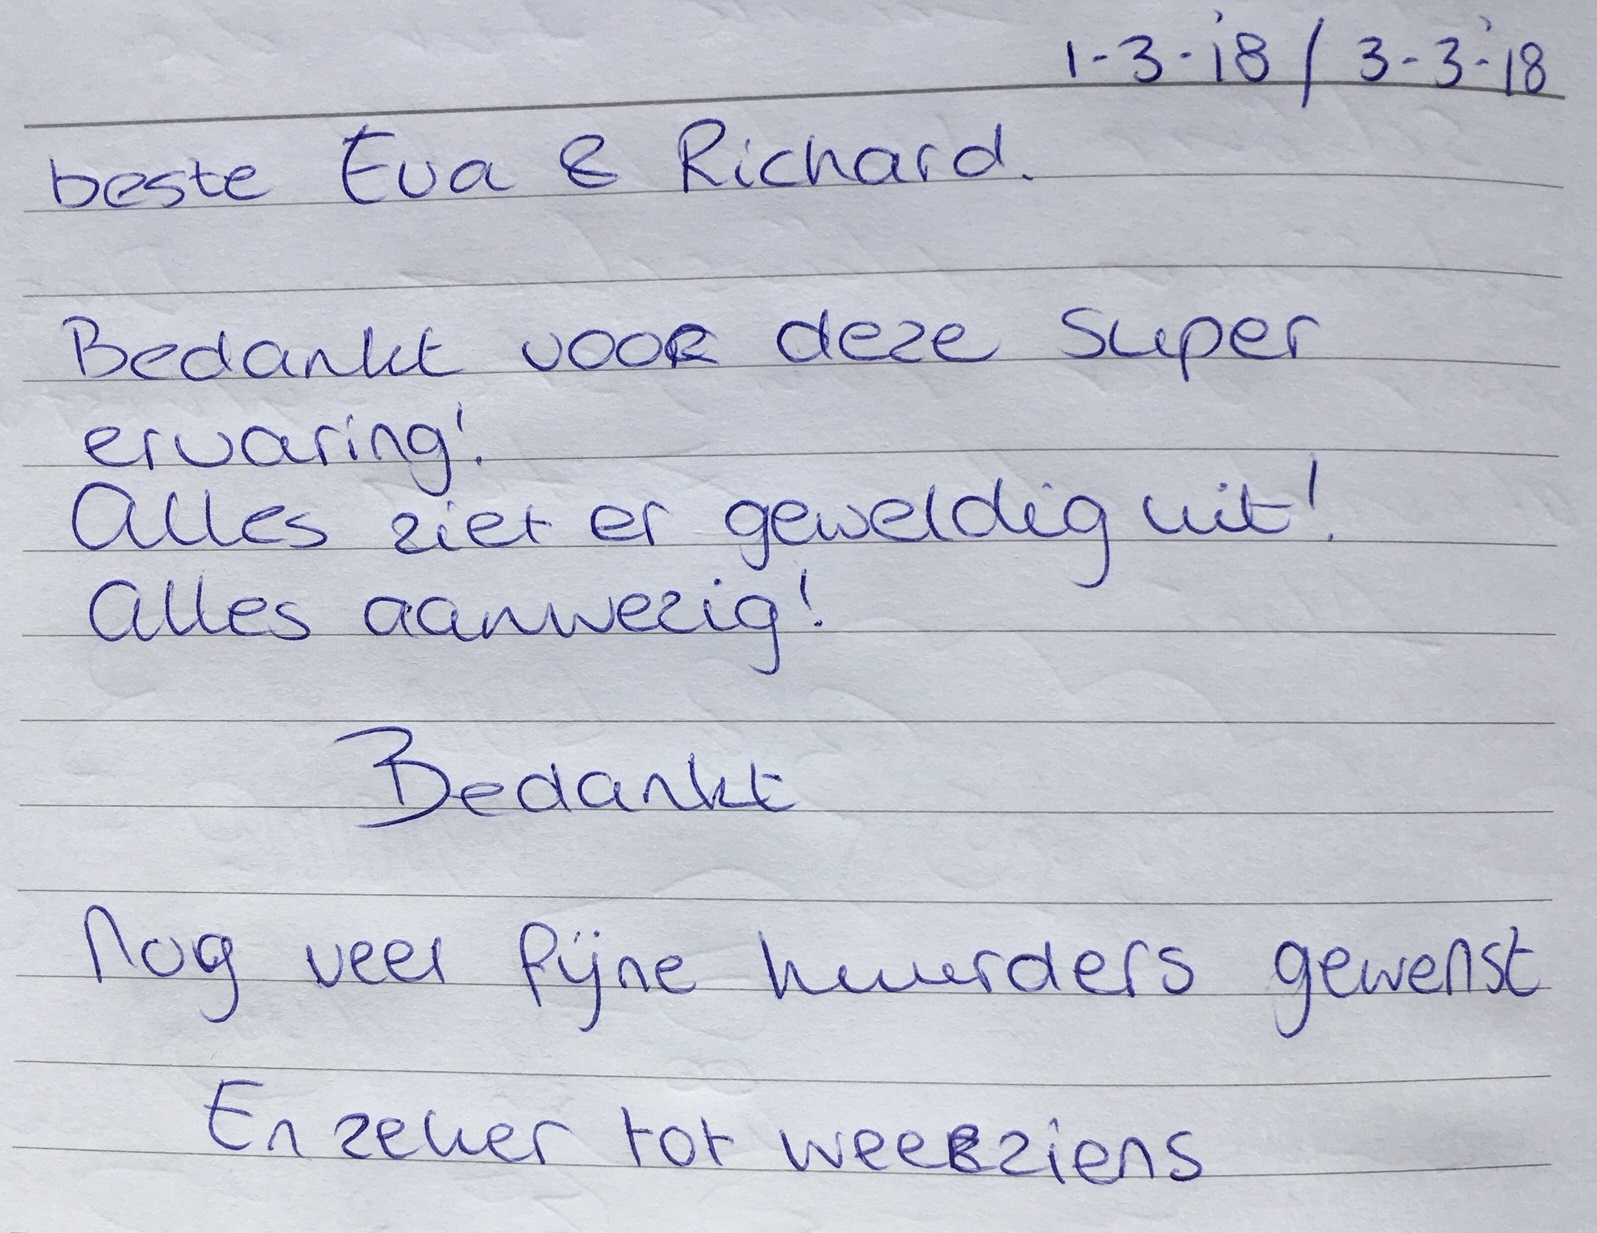 1-3-'18 / 3-3-'18
beste Eva & Richard.
Bedankt voor deze super
ervaring!
Alles ziet er geweldig uit!
Alles aanwezig!
Bedankt
Nog veel fijne huurders gewenst
En zeker tot weerziens